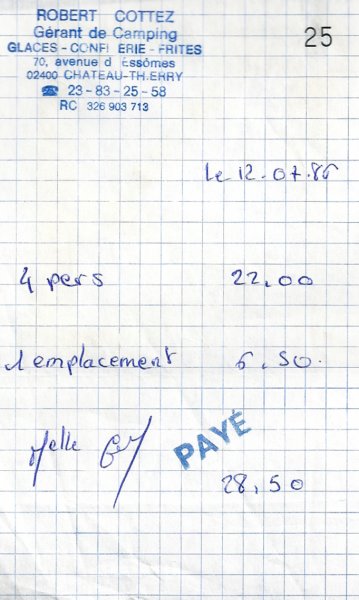 ROBERT COTTEZ
25
Gérant de Camping
GLACES - CONFI ERIE - FRITES
70, avenue d Essômes
02400 CHATEAU-TH.ERRY
☎ 23-83-25-58
RC 326 903 713
le 12.07.86
4 pers 22,00
1 emplacement 6,50.
Melle
PAYÉ
28,50